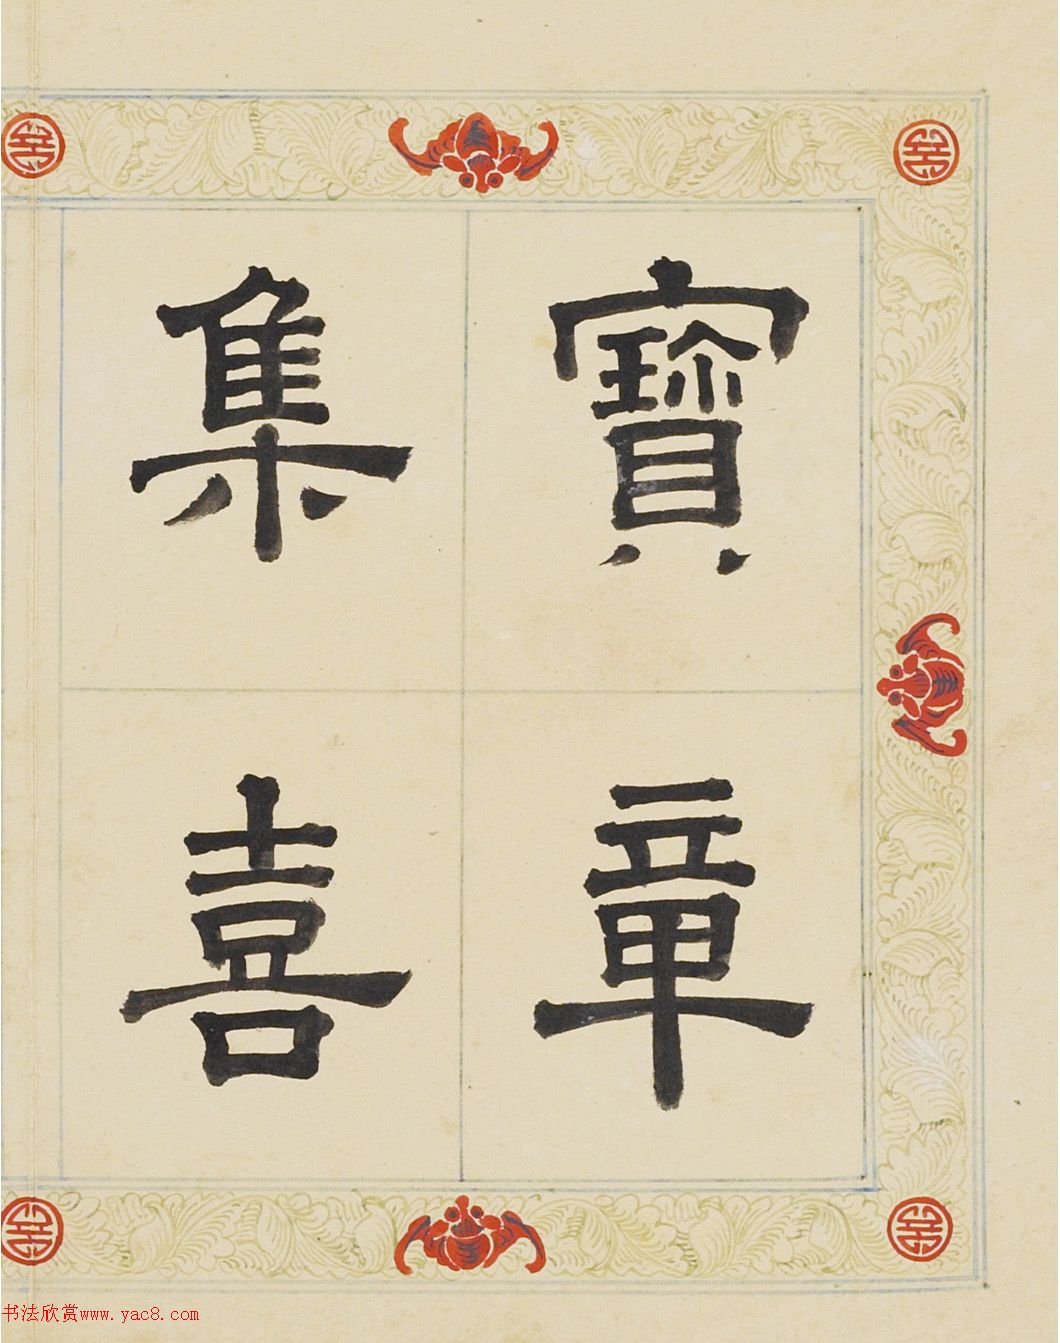 寶章
集喜
书法欣赏www.yac8.com